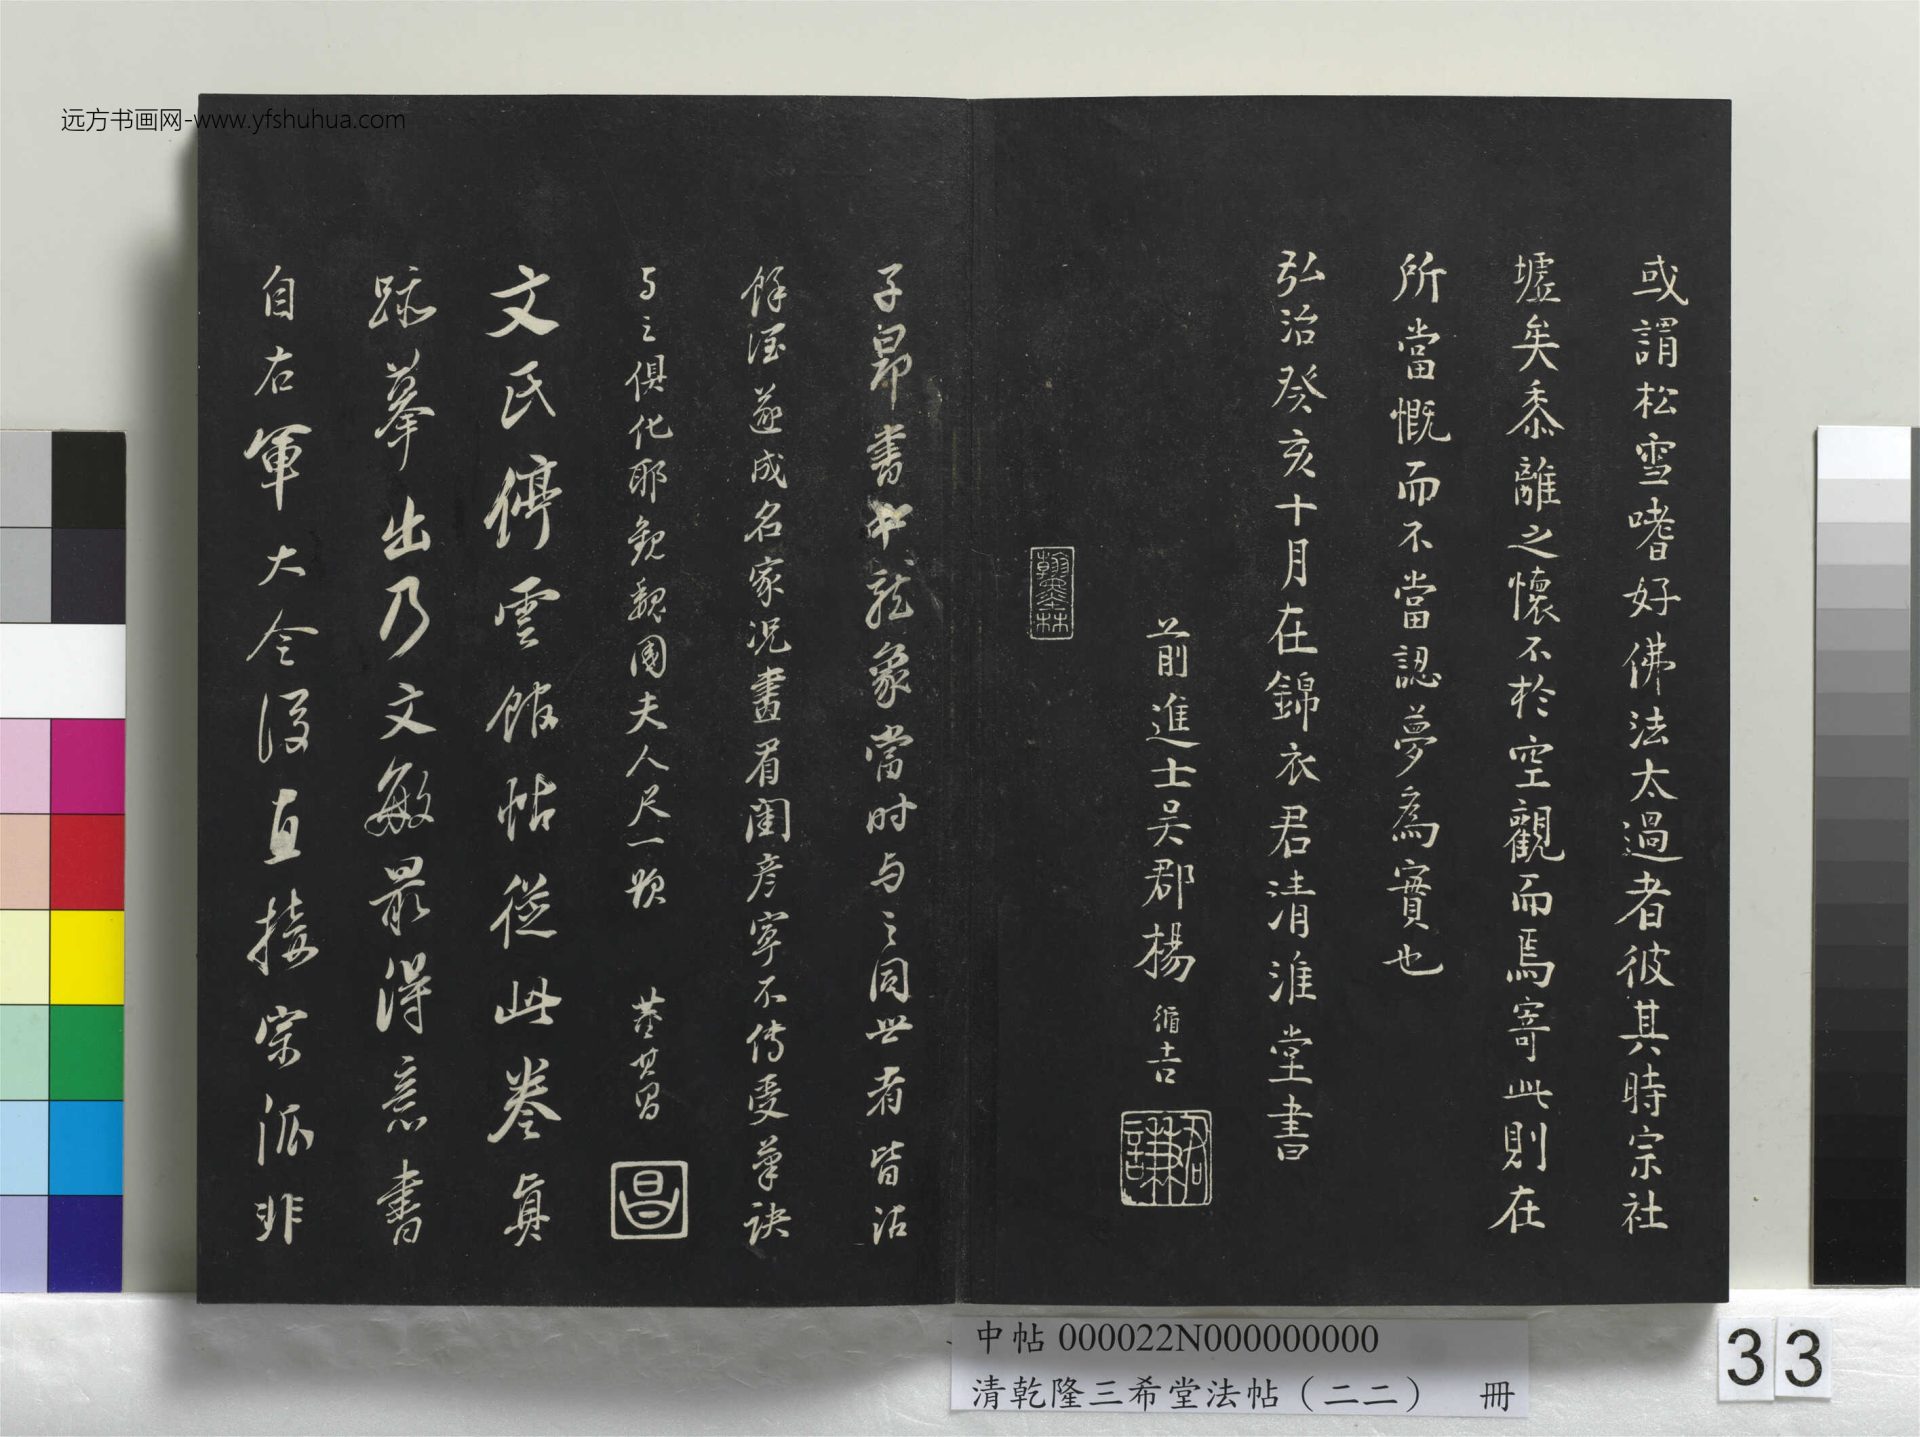 远方书画网-www.yfshuhua.com
或謂松雪嗜好佛法太過者彼其時宗社
墟矣黍離之懷不於空觀而焉寄此則在
所當慨而不當認夢為實也
弘治癸亥十月在錦衣君清淮堂書
前進士吳郡楊循吉
君謙
子昂書中龍象當时与之同世者皆沾
餘瀝遂成名家況畫眉閨彦寧不傳受筆訣
与之俱化耶觀魏國夫人尺一題 董其昌
昌
文氏停雲館帖從此卷真
跡摹出乃文敏最得意書
自右軍大令後直接宗派非
中帖 000022N000000000
清乾隆三希堂法帖（二二） 冊
33